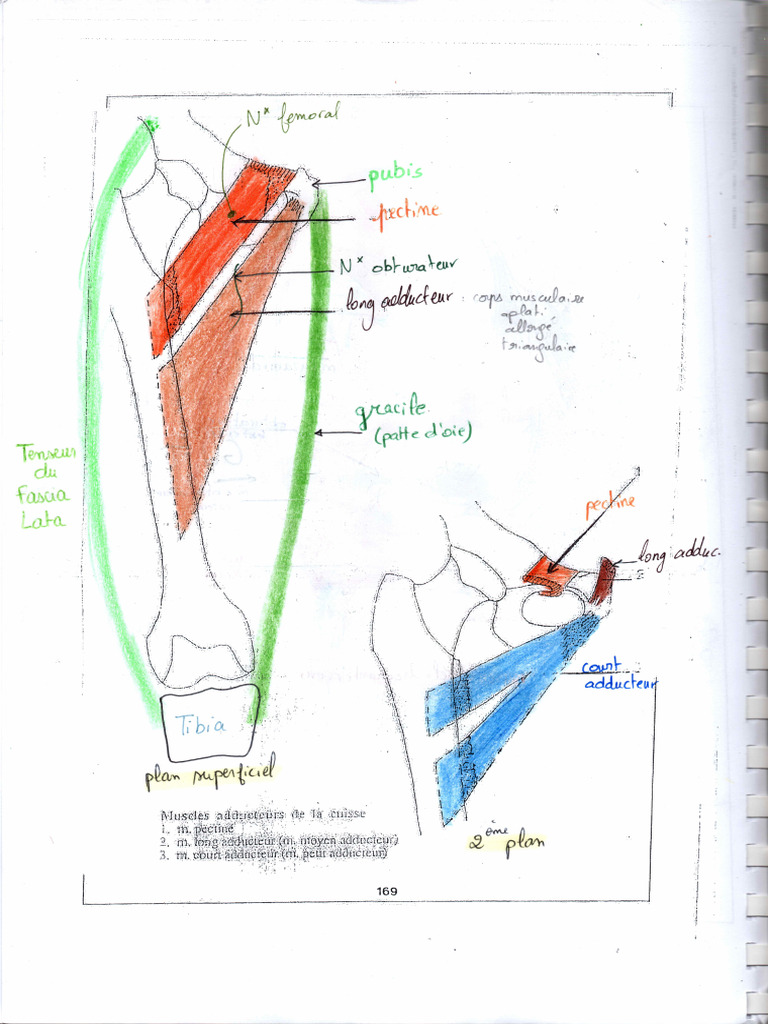 N* femoral
pubis
pectine
N* obturateur
long adducteur : corps musculaire
aplati,
allongé
triangulaire
gracile
(patte d'oie)
Tenseur
du
Fascia
Lata
pectine
long adduc.
court
adducteur
Tibia
plan superficiel
2ème plan
Muscles adducteurs de la cuisse
1. m. pectiné
2. m. long adducteur (m. moyen adducteur)
3. m. court adducteur (m. petit adducteur)
169